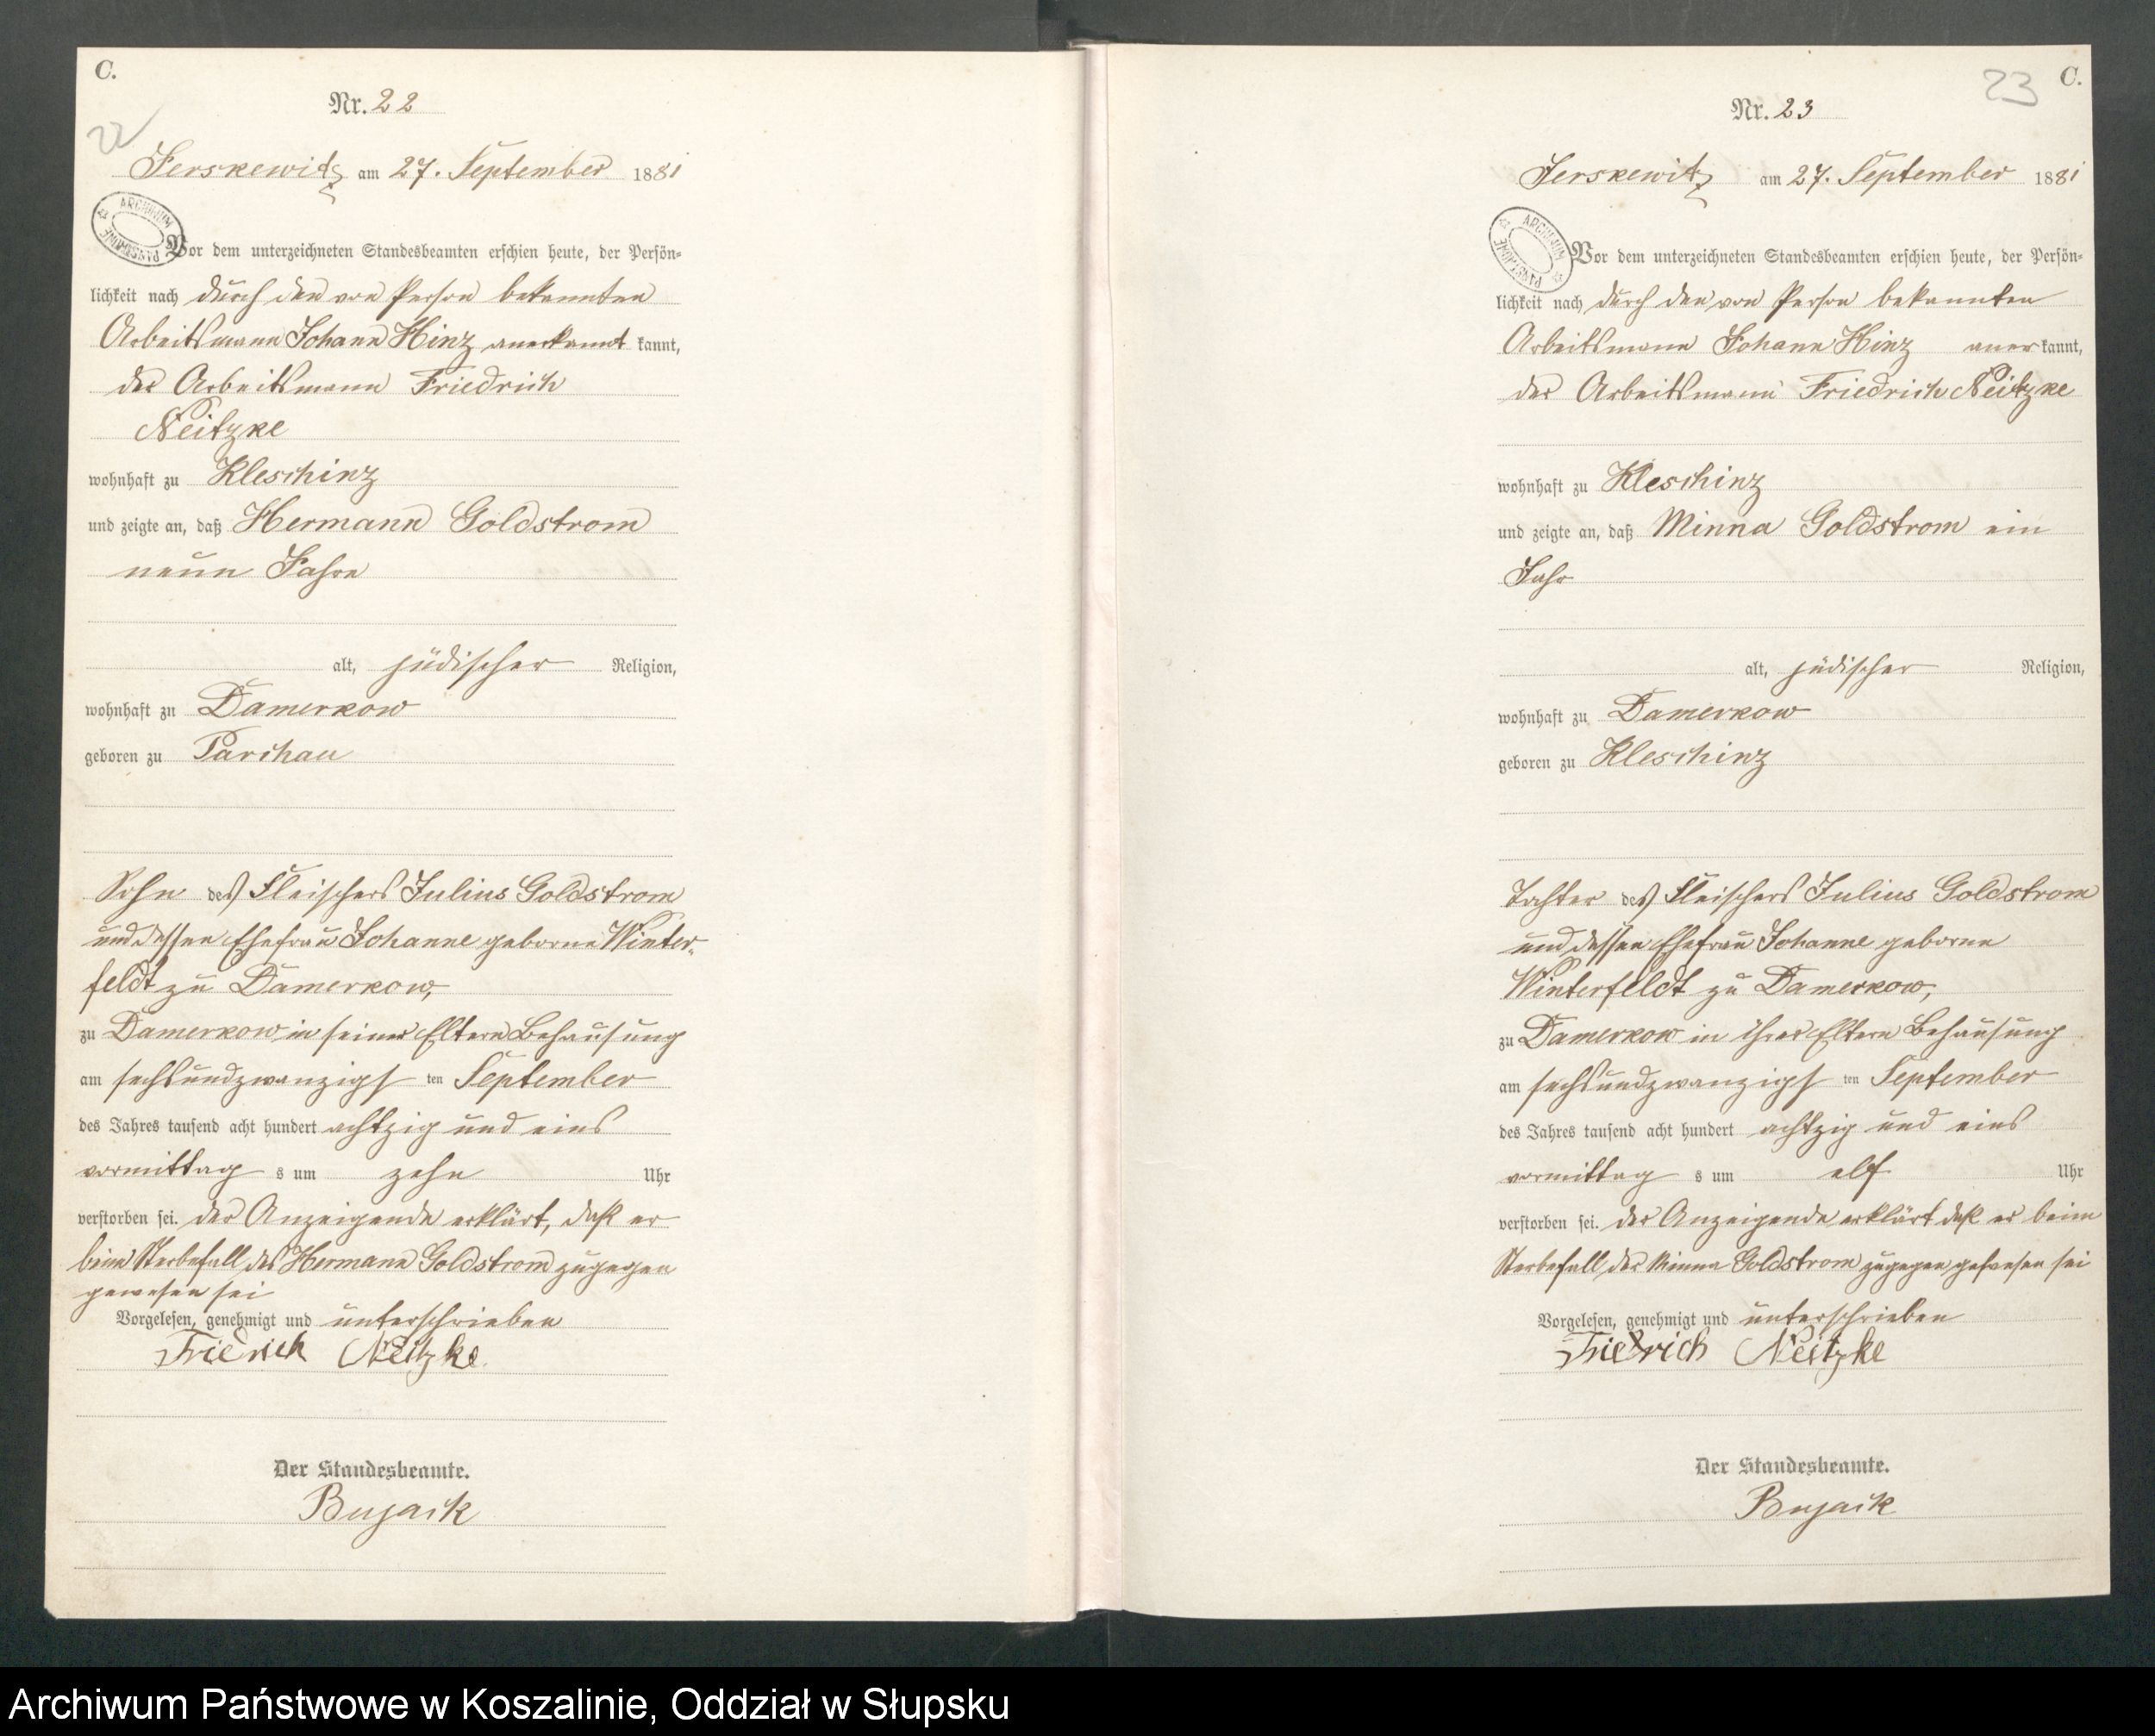 C.
Nr. 22
22
Jerskewitz am 27. September 1881
ARCHIWUM PAŃSTWOWE
Vor dem unterzeichneten Standesbeamten erschien heute, der Persön=
lichkeit nach durch den von Person bekannten
Arbeitsmann Johann Hinz anerkannt kannt,
der Arbeitsmann Friedrich
Neitzke
wohnhaft zu Kleschinz
und zeigte an, daß Hermann Goldstrom
neun Jahre
alt, jüdischer Religion,
wohnhaft zu Damerkow
geboren zu Parchau
Sohn des Fleischers Julius Goldstrom
und dessen Ehefrau Johanne geborne Winter-
feldt zu Damerkow,
zu Damerkow in seiner Eltern Behausung
am sechsundzwanzigst ten September
des Jahres tausend acht hundert achtzig und eins
vormittag s um zehn Uhr
verstorben sei. Der Anzeigende erklärt, daß er
beim Sterbefall des Hermann Goldstrom zugegen
gewesen sei
Vorgelesen, genehmigt und unterschrieben
Friedrich Neitzke
Der Standesbeamte.
Bujack
23 C.
Nr. 23
Jerskewitz am 27. September 1881
ARCHIWUM PAŃSTWOWE
Vor dem unterzeichneten Standesbeamten erschien heute, der Persön=
lichkeit nach durch den von Person bekannten
Arbeitsmann Johann Hinz aner kannt,
der Arbeitsmann Friedrich Neitzke
wohnhaft zu Kleschinz
und zeigte an, daß Minna Goldstrom ein
Jahr
alt, jüdischer Religion,
wohnhaft zu Damerkow
geboren zu Kleschinz
Tochter des Fleischers Julius Goldstrom
und dessen Ehefrau Johanne geborne
Winterfeldt zu Damerkow,
zu Damerkow in ihrer Eltern Behausung
am sechsundzwanzigst ten September
des Jahres tausend acht hundert achtzig und eins
vormittag s um elf Uhr
verstorben sei. Der Anzeigende erklärt daß er beim
Sterbefall der Minna Goldstrom zugegen gewesen sei
Vorgelesen, genehmigt und unterschrieben
Friedrich Neitzke
Der Standesbeamte.
Bujack
Archiwum Państwowe w Koszalinie, Oddział w Słupsku